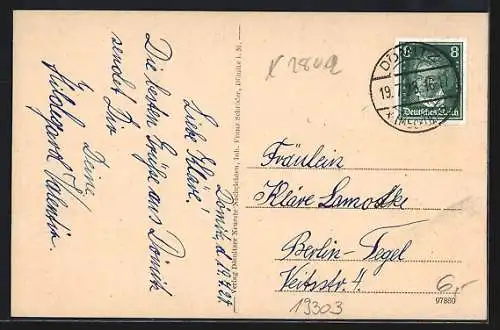 Dömitz, d. 19.7.27.
Liebe Kläre!
Die besten Grüße aus Dömitz
sendet Dir
Deine
Hildegard Valentin
Verlag Dömitzer Neueste Nachrichten, Inh. Franz Schröder, Dömitz i. M.
8
Deutsches Reich
19.7.
Fräulein
Kläre Lamottke
Berlin-Tegel
Veitsstr. 4.
19303
6,-
97880